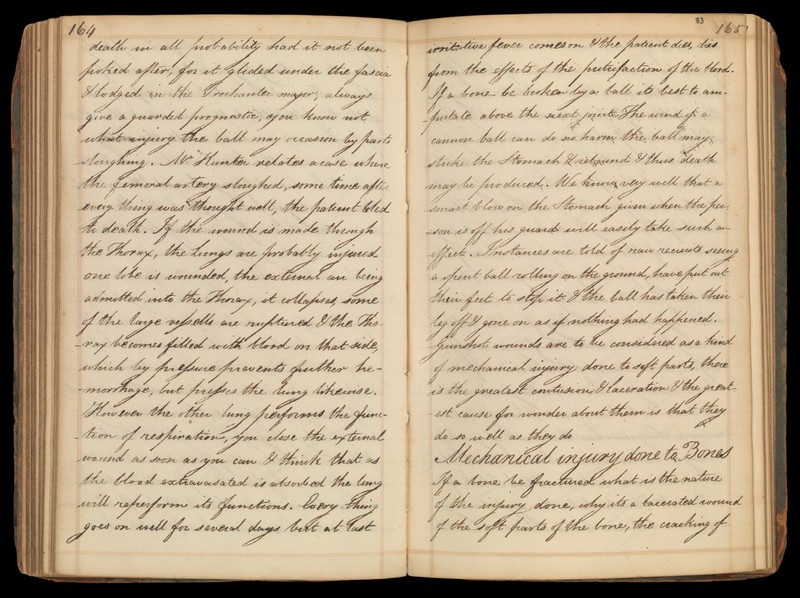 164
death in all probability had it not been
poked after, for it glided under the fascia
& lodged in the Trochanter major, always
give a guarded prognostic, you know not
what injury the ball may occasion by parts
sloughing. Mr Hunter relates a case where
the femoral artery sloughed, some time after
every thing was thought well, the patient bled
to death. If the wound is made through
the Thorax, the Lungs are probably injured
one lobe is wounded, the external air being
admitted into the Thorax, it collapses, some
of the large vessells are ruptured & the Tho-
-rax becomes filled with blood on that side,
which by pressure prevents further he-
-morrhage, but presses the lung likewise.
However the other lung performs the func-
-tion of respiration, you close the external
wound as soon as you can & think that as
the blood extravasated is absorbed the lung
will reperform its functions. Every thing
goes on well for several days but at last
83
165
irritative fever comes on & the patient dies, dies
from the effects of the putrifaction of the blood.
If a bone be broken by a ball its best to am-
-putate above the next joint. The wind of a
cannon ball can do no harm, the ball may
strike the Stomach & rebound & thus death
may be produced. We know very well that a
smart blow on the Stomach given when the per-
-son is off his guard will easily take such an
effect. Instances are told of raw recruits seeing
a spent ball rolling on the ground, have put out
their feet to stop it & the ball has taken their
leg off & gone on as if nothing had happened.
Gunshot wounds are to be considered as a kind
of mechanical injury done to soft parts, there
is the greatest contusion & laceration & the great-
-est cause for wonder about them is that they
do so well as they do
Mechanical injury done to Bones
If a bone be fractured what is the nature
of the injury done, why its a lacerated wound
of the soft parts of the bone, the cracking of